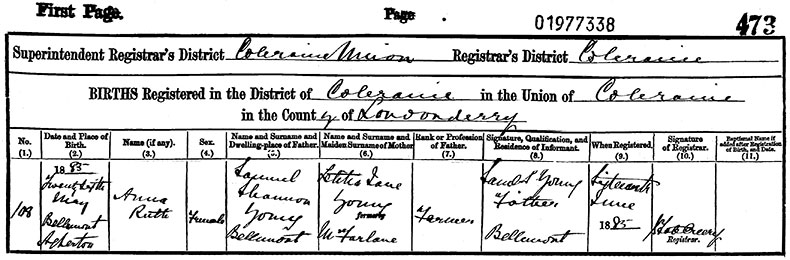 First Page. Page 01977338 473
Superintendent Registrar's District Coleraine Union Registrar's District Coleraine
BIRTHS Registered in the District of Coleraine in the Union of Coleraine
in the County of Londonderry
No. (1.) Date and Place of Birth. (2.) Name (if any). (3.) Sex. (4.) Name and Surname and Dwelling-place of Father. (5.) Name and Surname and Maiden Surname of Mother (6.) Rank or Profession of Father. (7.) Signature, Qualification, and Residence of Informant. (8.) When Registered. (9.) Signature of Registrar. (10.) Baptismal Name if added after Registration of Birth, and Date. (11.)
108
1885
May
Bellemont
Agherton
Anna
Ruth
Female
Samuel
Shannon
Young
Bellemont
Letitia Jane
Young
formerly
McFarlane
Farmer
Young
Father
Bellemont
Sixteenth
June
1885
Registrar.